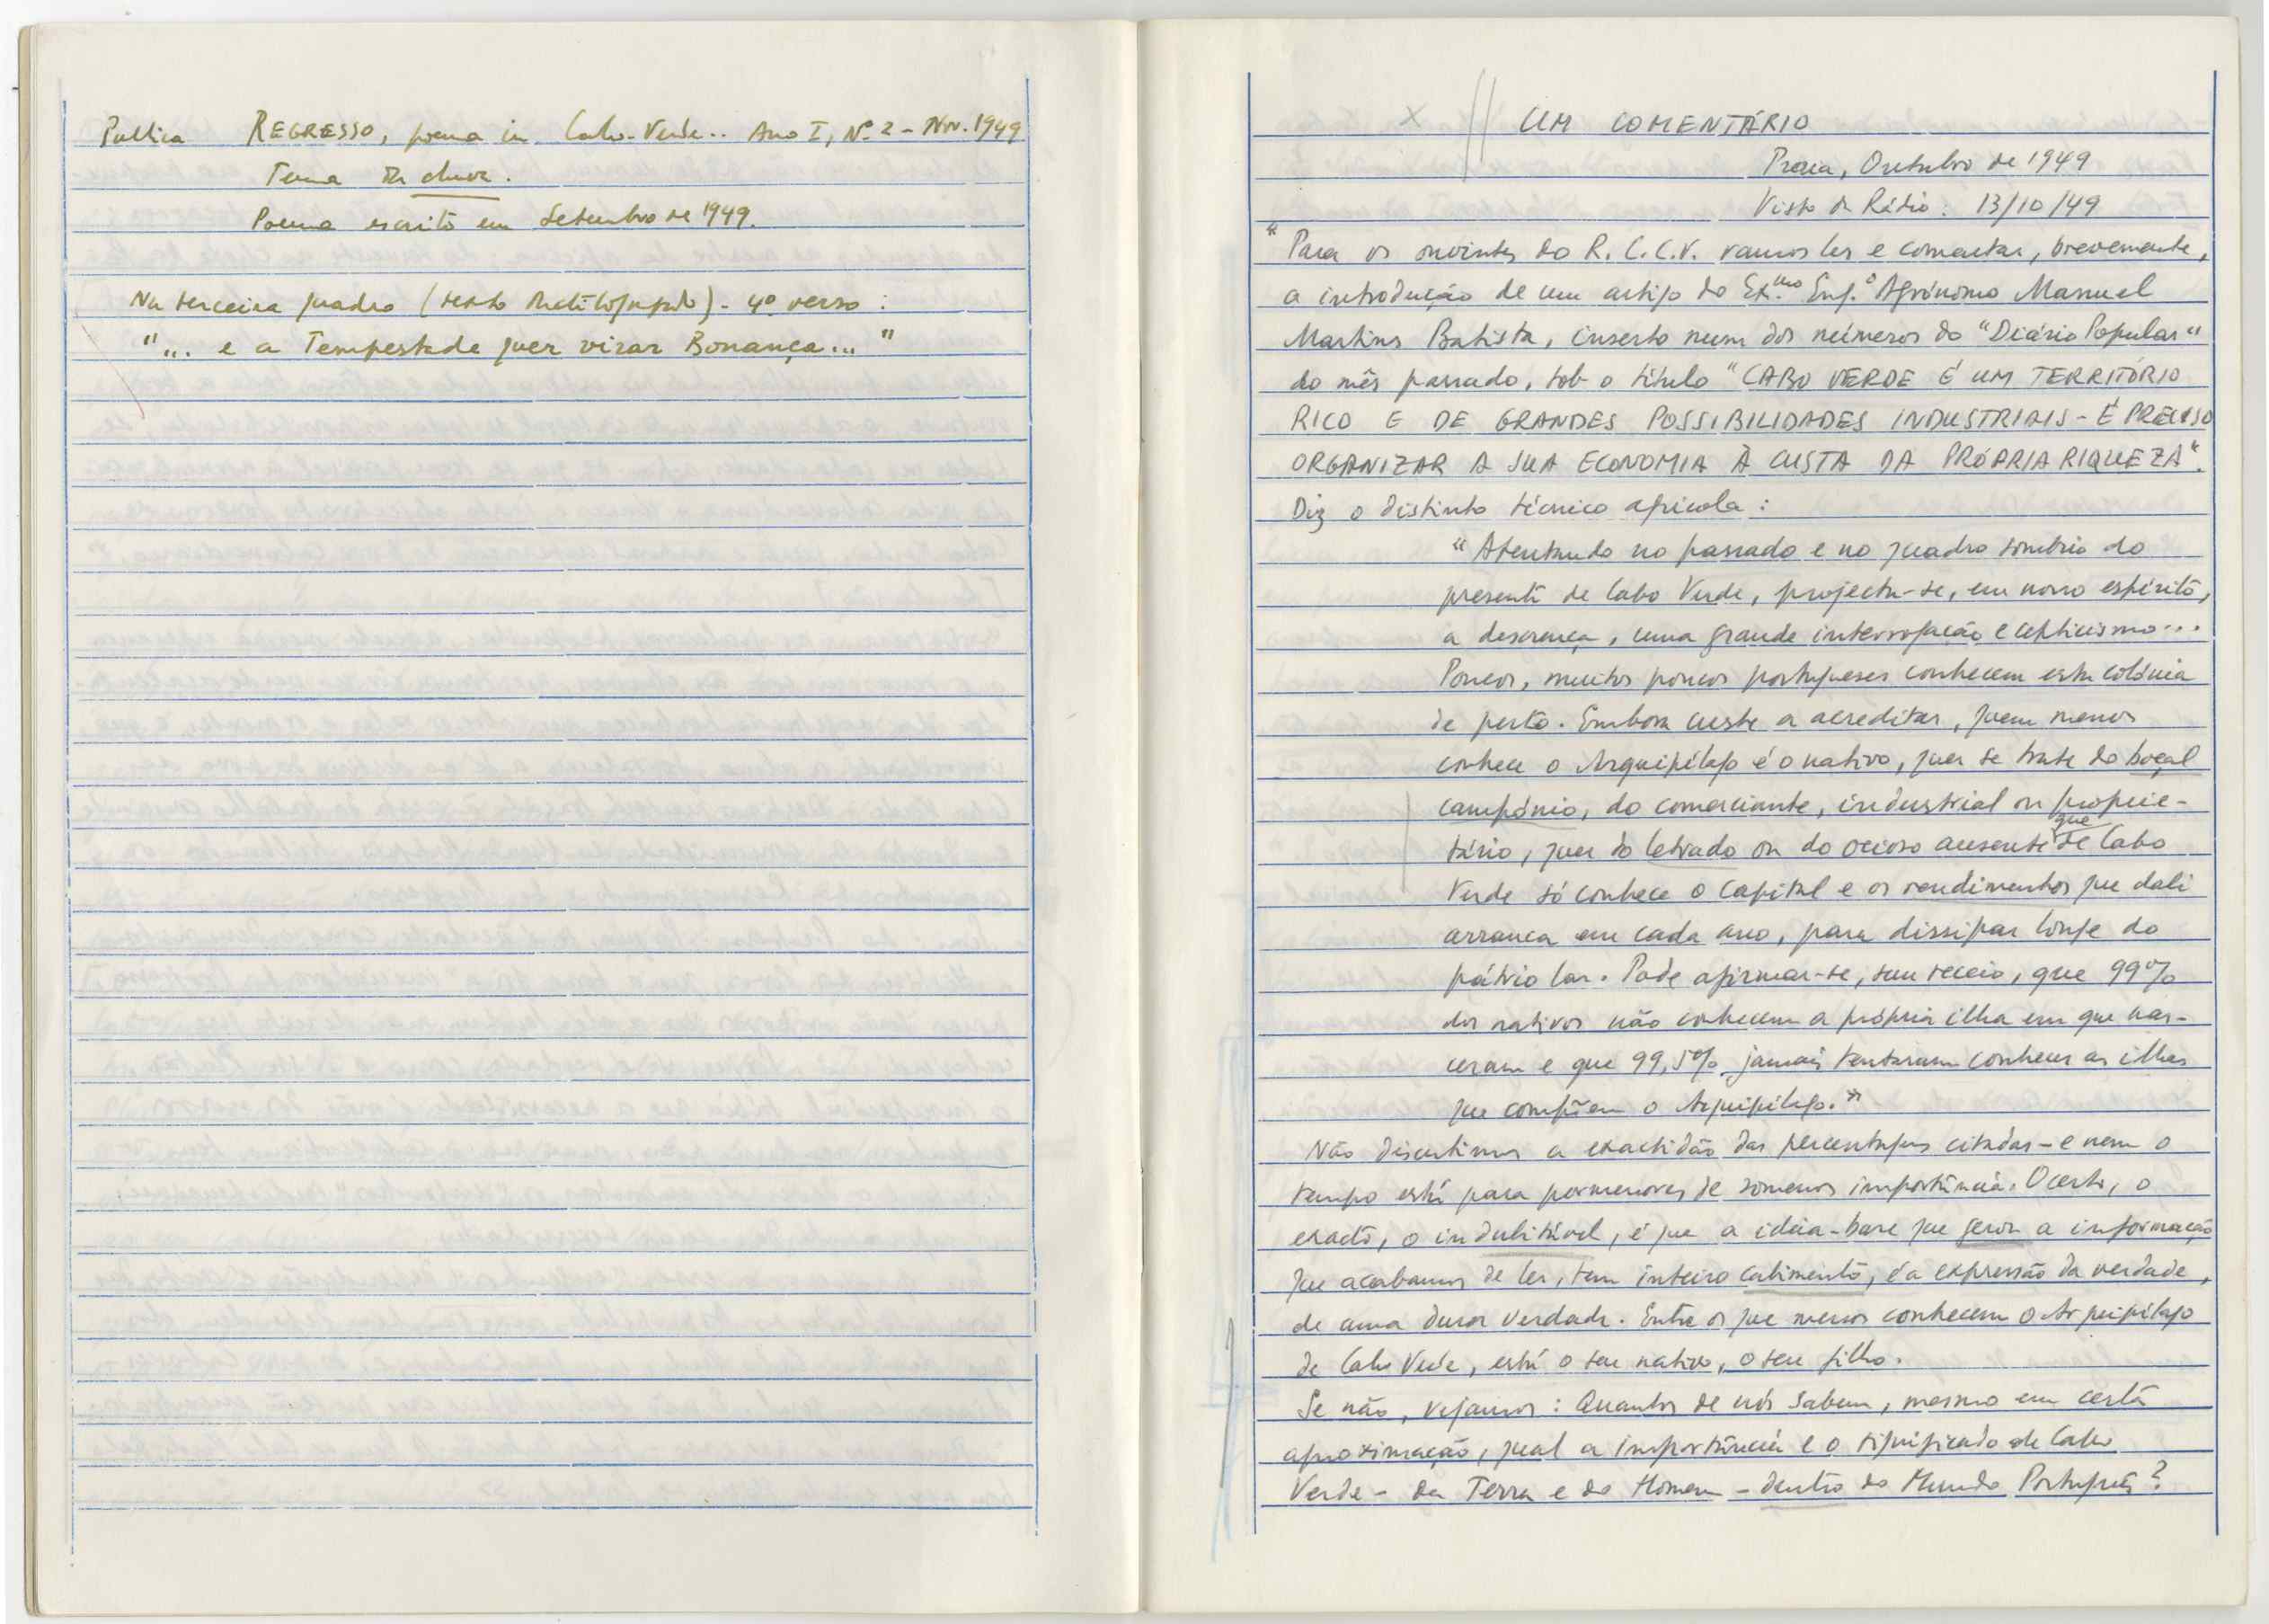 Publica REGRESSO, poema in Cabo-Verde.. Ano I, Nº 2 - Nov. 1949
Tema da chuva.
Poema escrito em Setembro de 1949.
Na terceira quadra (texto dactilografado) - 4º verso:
"... e a Tempestade quer virar Bonança..."
X // UM COMENTÁRIO
Praia, Outubro de 1949
Visto da Rádio: 13/10/49
"Para os ouvintes do R.C.C.V. vamos ler e comentar, brevemente,
a introdução de um artigo do Ex.mo Eng.º Agrónomo Manuel
Martins Batista, inserto num dos números do "Diário Popular"
do mês passado, sob o título "CABO VERDE É UM TERRITÓRIO
RICO E DE GRANDES POSSIBILIDADES INDUSTRIAIS - É PRECISO
ORGANIZAR A SUA ECONOMIA À CUSTA DA PRÓPRIA RIQUEZA".
Diz o distinto técnico agrícola:
"Atentando no passado e no quadro sombrio do
presente de Cabo Verde, projecta-se, em nosso espírito,
a descrença, uma grande interrogação e cepticismo...
Poucos, muitos poucos portugueses conhecem esta colónia
de perto. Embora custe a acreditar, quem menos
conhece o Arquipélago é o nativo, quer se trate do boçal
campónio, do comerciante, industrial ou proprie-
tário, quer do letrado ou do ocioso ausente que de Cabo
Verde só conhece o capital e os rendimentos que dali
arranca em cada ano, para dissipar longe do
pátrio lar. Pode afirmar-se, sem receio, que 99%
dos nativos não conhecem a própria ilha em que nas-
ceram e que 99,5% jamais tentaram conhecer as ilhas
que compõem o Arquipélago."
Não discutimos a exactidão das percentagens citadas - e nem o
tempo está para pormenores de somenos importância. O certo, o
exacto, o indubitável, é que a ideia-base que gerou a informação
que acabamos de ler, tem inteiro cabimento, é a expressão da verdade,
de uma dura verdade. Entre os que menos conhecem o Arquipélago
de Cabo Verde, está o seu nativo, o seu filho.
Se não, vejamos: Quantos de nós sabem, mesmo em certa
aproximação, qual a importância e o significado de Cabo
Verde - da Terra e do Homem - dentro do Mundo Português?